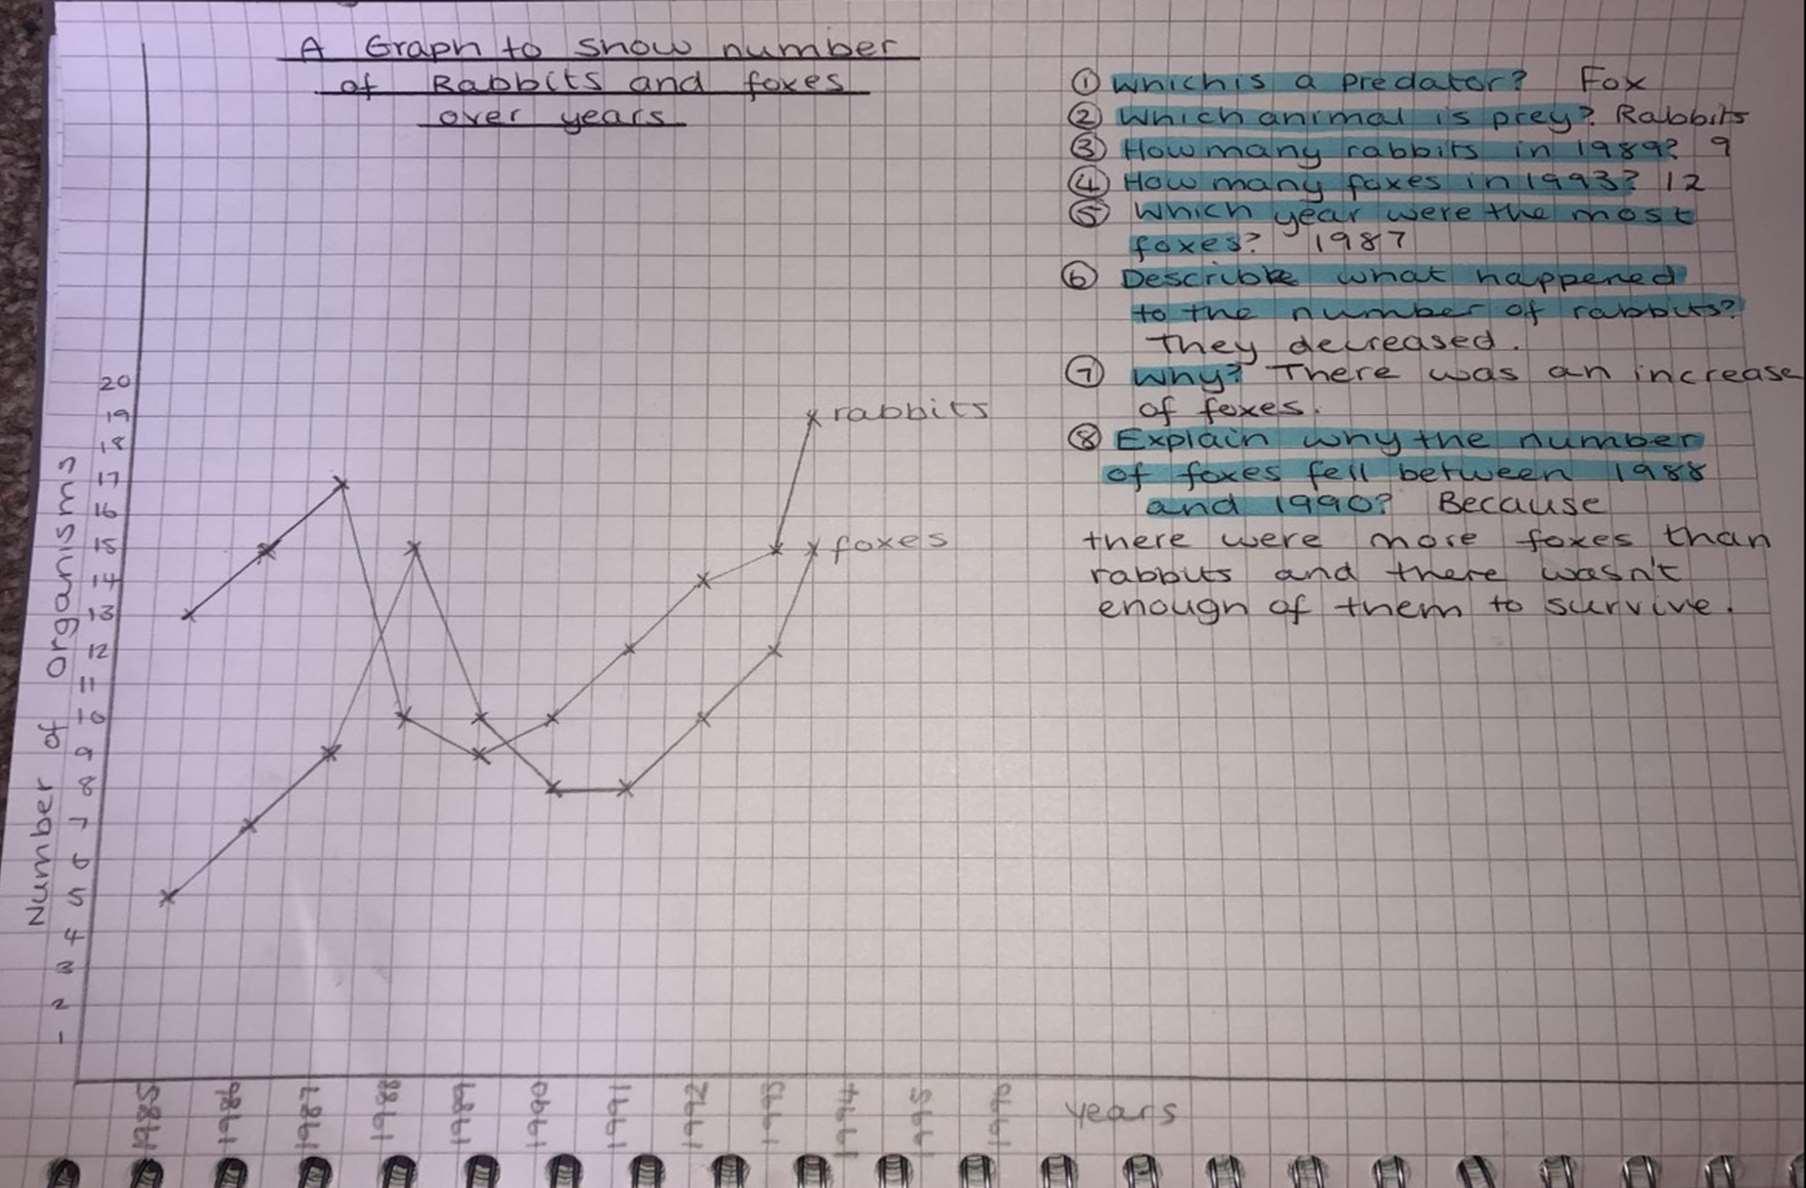 A Graph to show number
of Rabbits and foxes
over years
Number of organisms
20
19
18
17
16
15
14
13
12
11
10
9
8
7
6
5
4
3
2
1
rabbits
foxes
1985
1986
1987
1988
1989
1990
1991
1992
1993
1994
1995
1996
years
① Which is a predator? Fox
② Which animal is prey? Rabbits
③ How many rabbits in 1989? 9
④ How many foxes in 1993? 12
⑤ Which year were the most
foxes? 1987
⑥ Describe what happened
to the number of rabbits?
They decreased.
⑦ Why? There was an increase
of foxes.
⑧ Explain why the number
of foxes fell between 1988
and 1990? Because
there were more foxes than
rabbits and there wasn't
enough of them to survive.